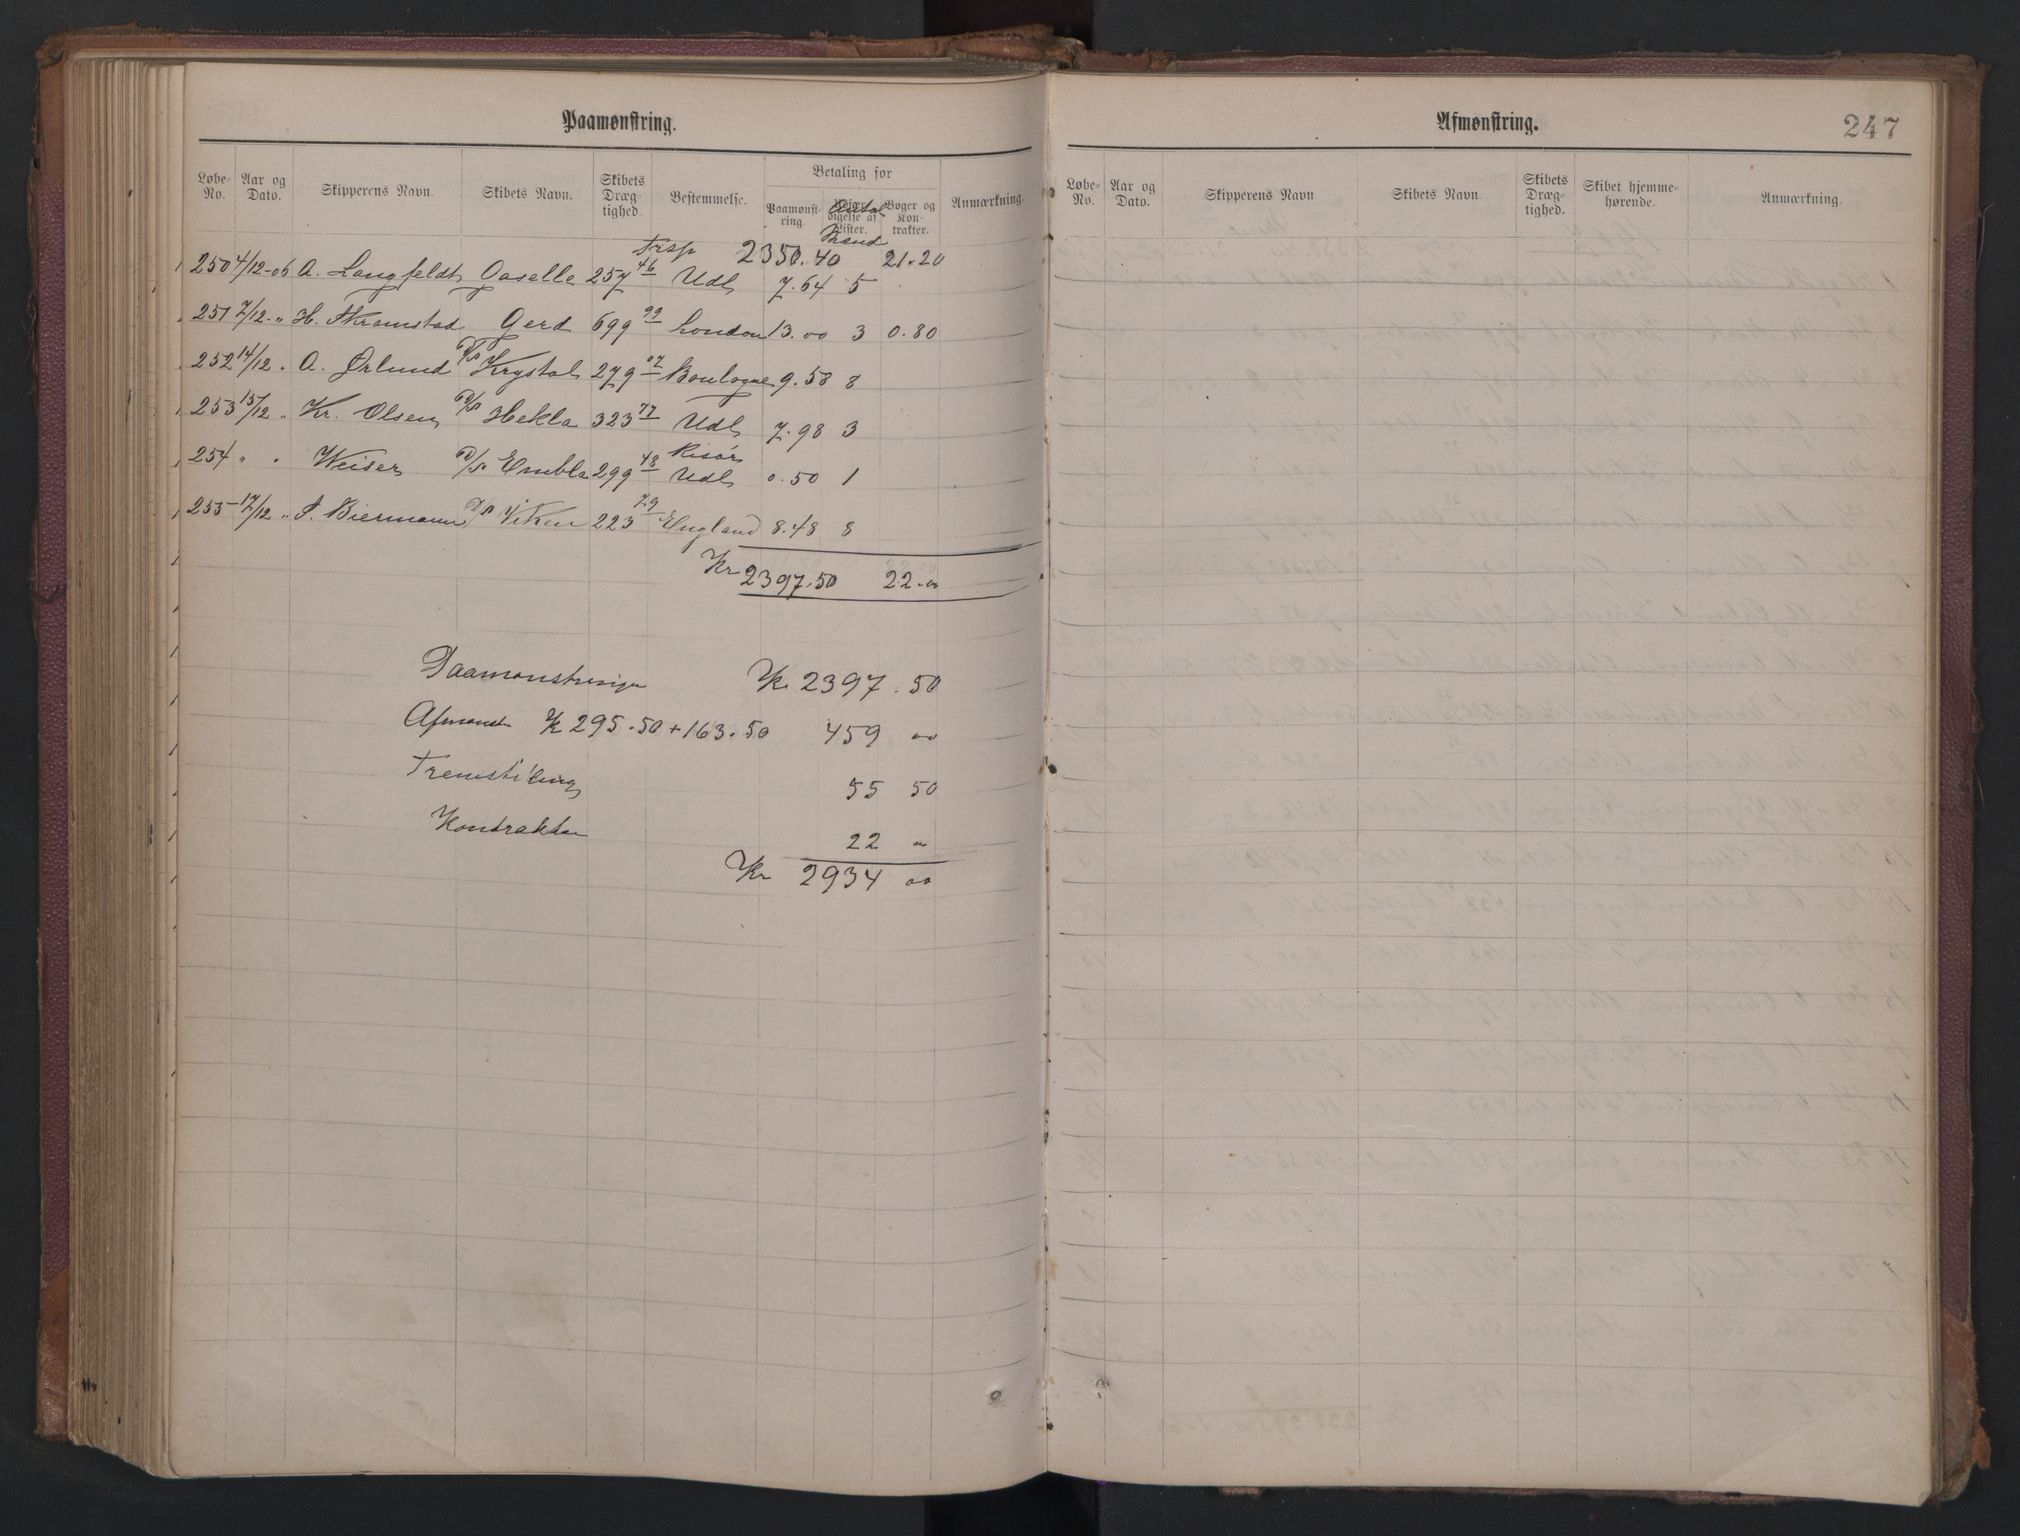 Paamønstring.
Løbe-No. Aar og Dato. Skipperens Navn. Skibets Navn. Skibets Dræg-tighed. Bestemmelse. Betaling for Paamønst-ring. Antal Mænd Bøger og Kon-trakter. Anmærkning.
Trsp 2350.40 21.20
250 4/12-06 A. Langfeldt Gaselle 257 46 Udl 7.64 5
251 7/12 - " H. Skramstad Gerd 699 99 London 13.00 3 0.80
252 14/12 " A. Ørlund D/S Krystal 279 07 Boulogne 9.58 8
253 15/12 " Kr. Olsen D/S Hekla 323 77 Udl 7.98 3
254 " " Weiser D/S Embla 299 48 Risør Udl 0.50 1
255 17/12 " S. Biermann D/S Viken 223 79 England 8.48 8
Kr 2397.50 22.00
Paamønstringer Kr 2397.50
Afmønst K 295.50 + 163.50 459 00
Fremstilling 55 50
Kontrakter 22 00
Kr 2934 00
Afmønstring. 247
Løbe-No. Aar og Dato. Skipperens Navn. Skibets Navn. Skibets Dræg-tighed. Skibet hjemme-hørende. Anmærkning.